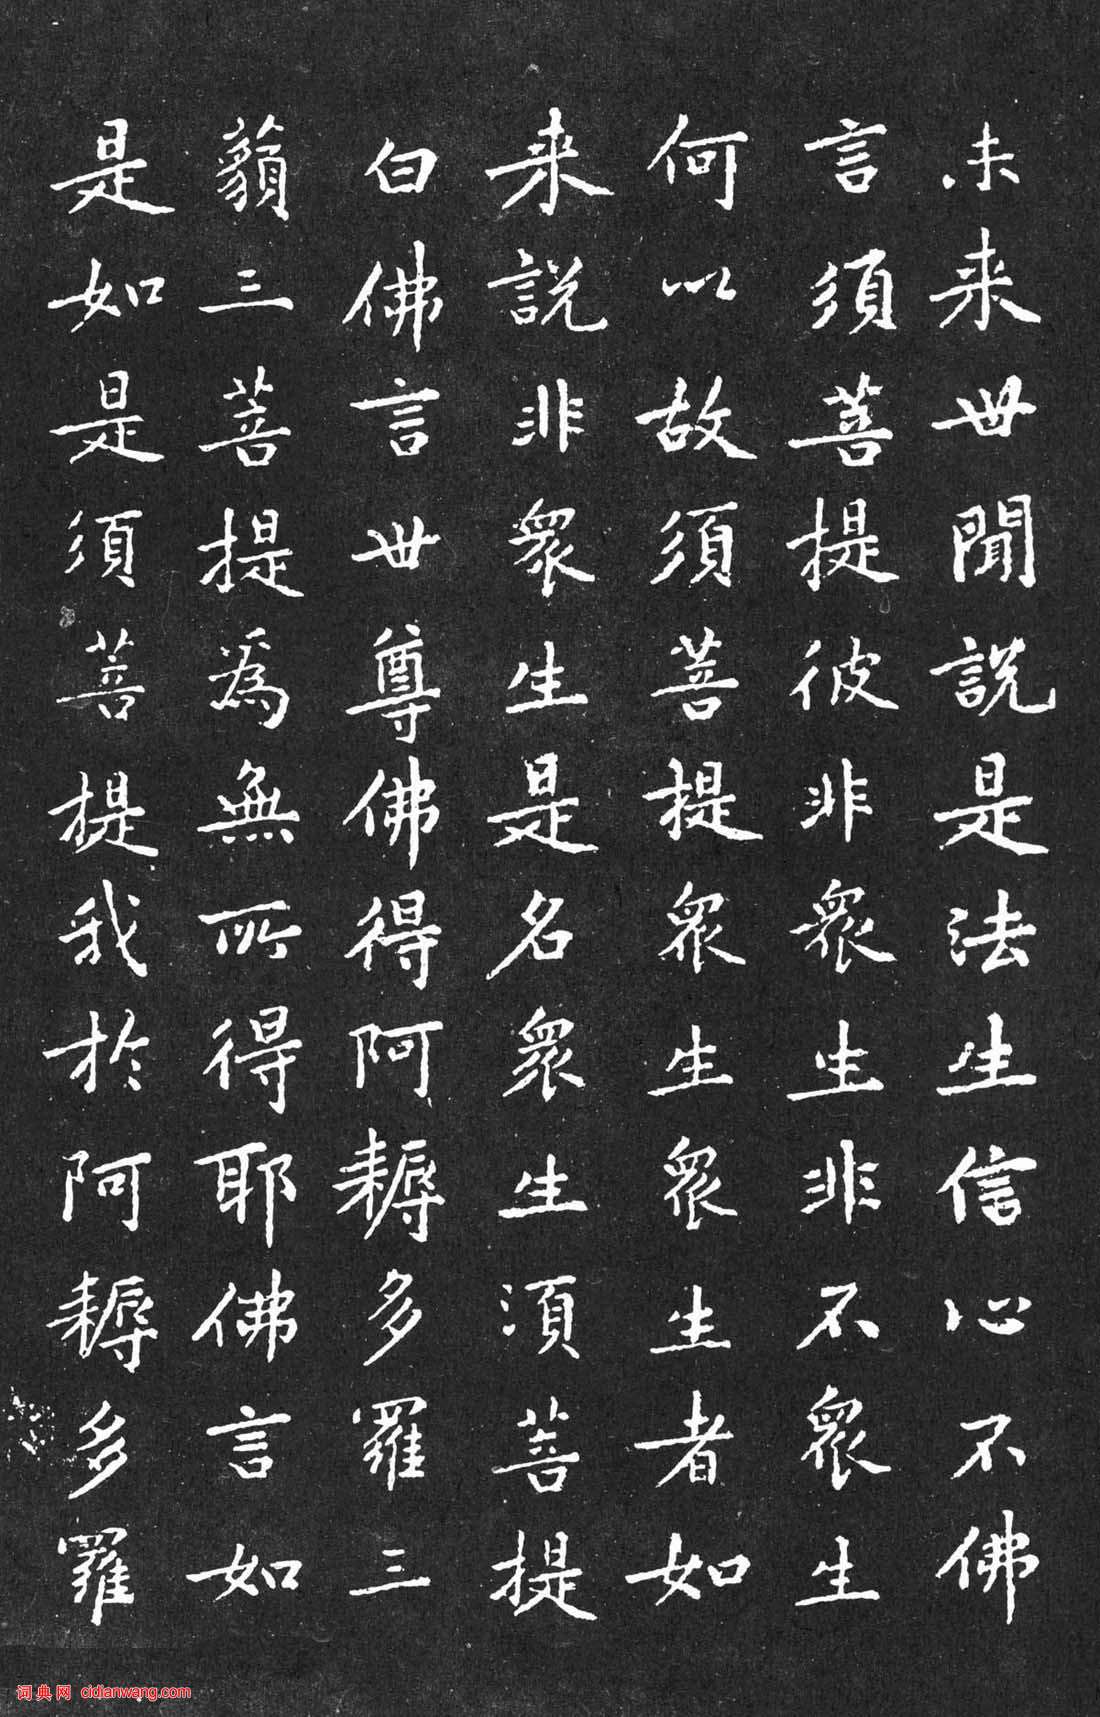 未来世聞說是法生信心不佛
言須菩提彼非衆生非不衆生
何以故須菩提衆生衆生者如
来說非衆生是名衆生須菩提
白佛言世尊佛得阿耨多羅三
藐三菩提為無所得耶佛言如
是如是須菩提我於阿耨多羅
词典网 cidianwang.com